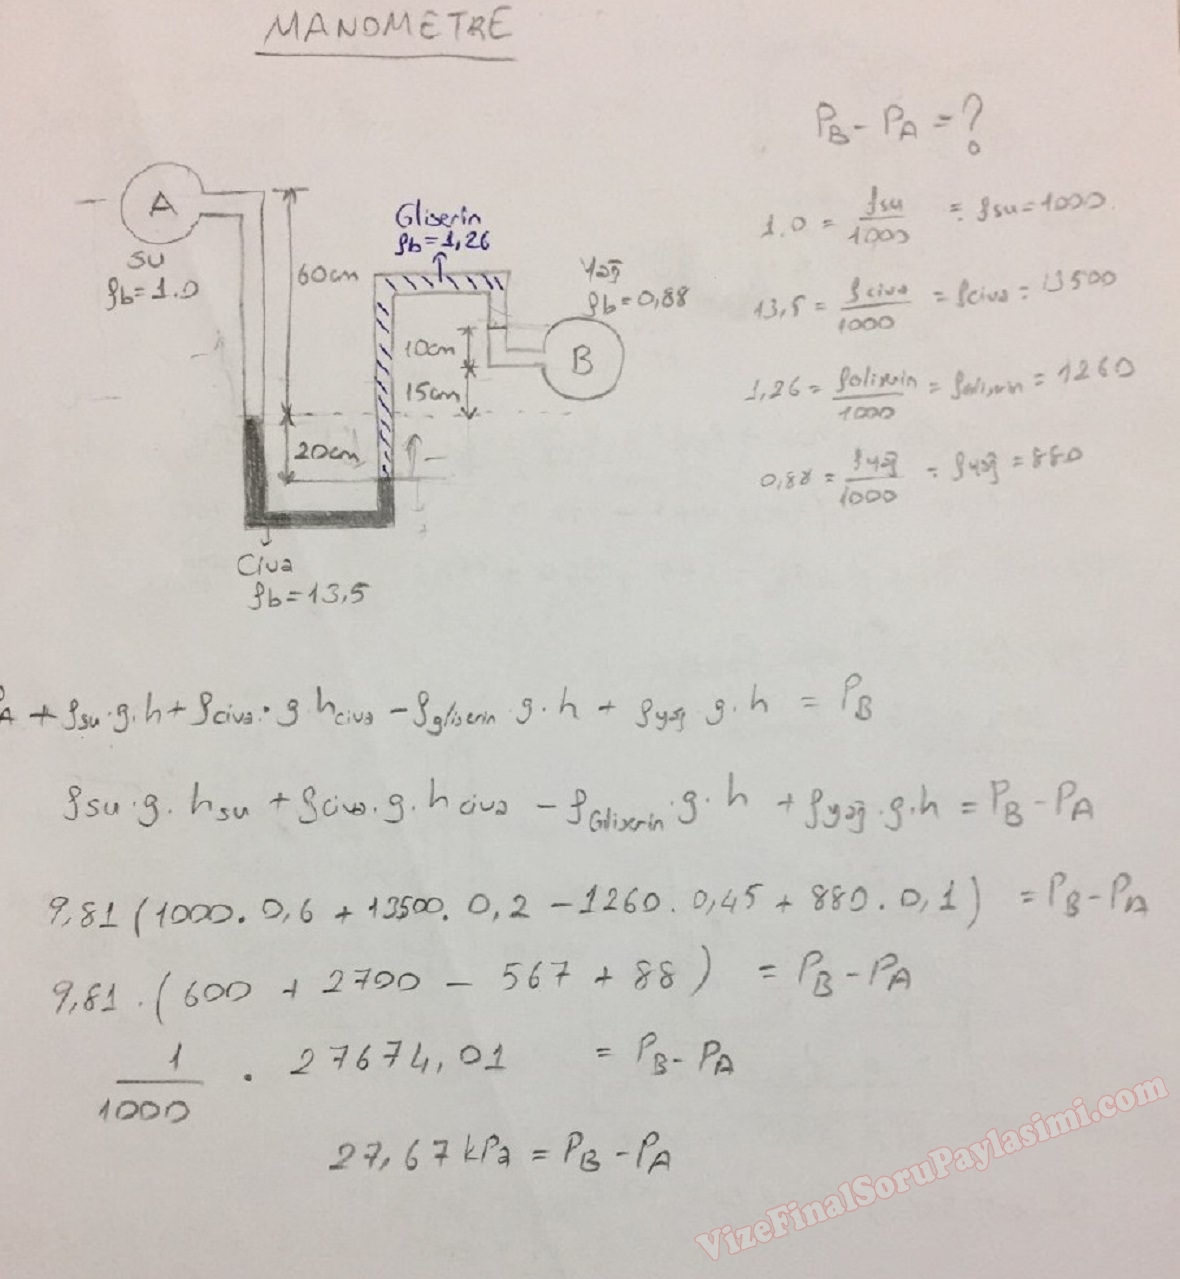 MANOMETRE
PB - PA = ?
A
su
ρb = 1.0
60cm
Gliserin
ρb = 1,26
Yağ
ρb = 0,88
B
10cm
15cm
20cm
Civa
ρb = 13,5
1.0 = ρsu/1000 = ρsu = 1000.
13,5 = ρciva/1000 = ρciva = 13500
1,26 = ρgliserin/1000 = ρgliserin = 1260
0,88 = ρyağ/1000 = ρyağ = 880
PA + ρsu.g.h + ρciva.g hciva - ρgliserin g.h + ρyağ g.h = PB
ρsu.g.hsu + ρciva.g.hciva - ρGliserin.g.h + ρyağ.g.h = PB - PA
9,81 (1000.0,6 + 13500.0,2 - 1260.0,45 + 880.0,1) = PB - PA
9,81.(600 + 2700 - 567 + 88) = PB - PA
1/1000 . 27674,01 = PB - PA
27,67 kPa = PB - PA
VizeFinalSoruPaylasimi.com